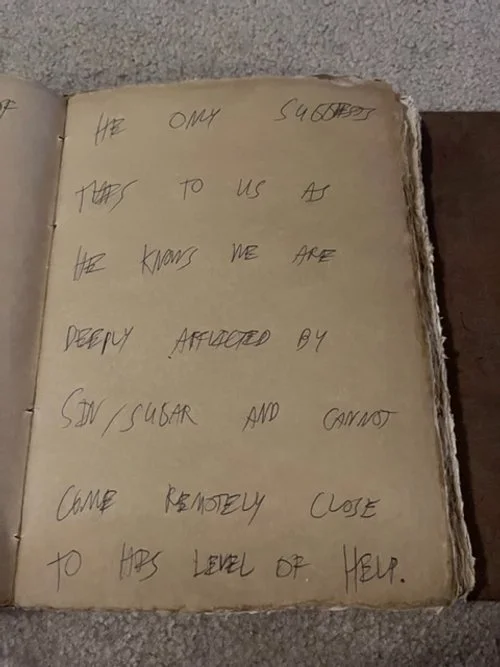 HE ONLY SUGGESTS
THIS TO US AS
HE KNOWS WE ARE
DEEPLY AFFLICTED BY
SIN/SUGAR AND CANNOT
COME REMOTELY CLOSE
TO HIS LEVEL OF HELP.